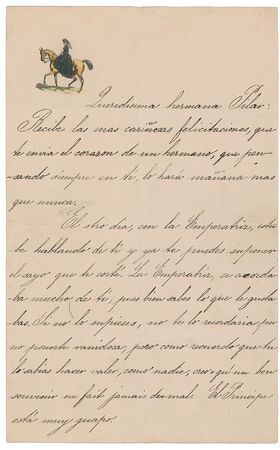 Queridisima hermana Pilar:
Recibe las mas cariñosas felicitaciones, que
te envia el corazon de un hermano, que pen-
sando siempre en ti, lo hará mañana mas
que nunca.
El otro dia, con la Emperatriz, estu-
be hablando de ti y ya te puedes suponer
el sayo que te corté. La Emperatriz, se acorda-
ba mucho de ti, pues bien sabes lo que le gusta-
bas. Si no lo supieses, no te lo recordaria por
no ponerte vanidosa, pero como recuerdo que tu
lo sabias hacer valer, como nadie, creo que un bon
souvenir ne fait jamais du mal. El Principe
está muy guapo.